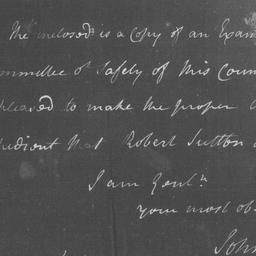 The inclosed is a Copy of an Exam
ommittee of Safety of this Coun
pleased to make the proper
edient that Robert Sutton
I am Gentn
your most ob
John